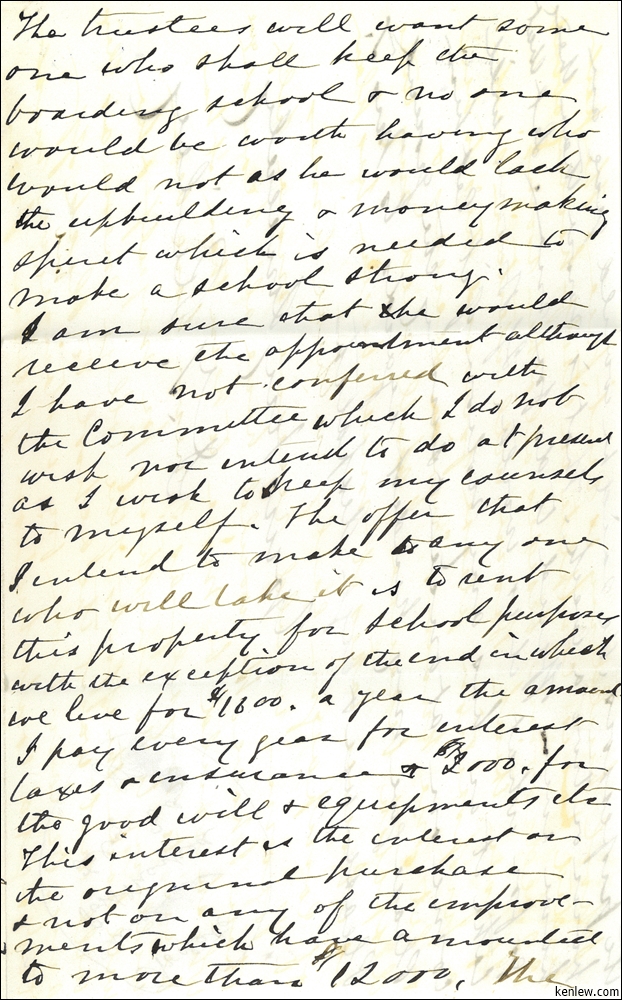 The trustees will want some
one who shall keep the
boarding school & no one
would be worth having who
would not as he would lack
the upbuilding & moneymaking
spirit which is needed to
make a school strong.
I am sure that she would
receive the appointment although
I have not conferred with
the Committee which I do not
wish nor intend to do at present
as I wish to keep my counsels
to myself. The offer that
I intend to make to any one
who will take it is to rent
this property for school purposes
with the exception of the end in which
we live for $1600. a year the amount
I pay every year for interest
taxes & insurance & $3000. for
the good will & equipments etc
This interest is the interest on
the original purchase
& not on any of the improve-
ments which have amounted
to more than $12000. The
kenlew.com